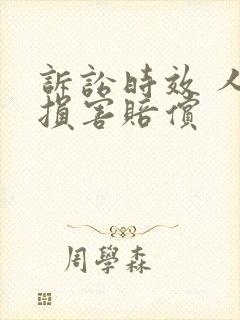 訴訟時效 人
損害賠償
周學森